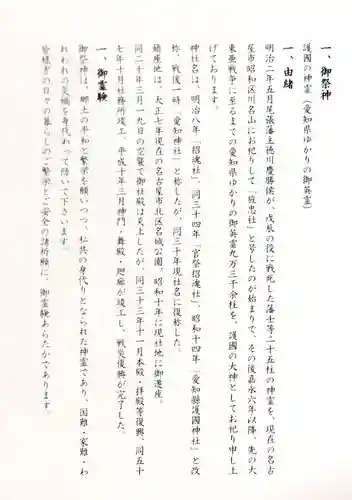 一、御祭神
護国の神霊（愛知県ゆかりの御英霊）
一、由緒
明治二年五月尾張藩主徳川慶勝侯が、戊辰の役に戦死した藩士等二十五柱の神霊を、現在の名古
屋市昭和区川名山にお祀りして「旌忠社」と号したのが始まりで、その後嘉永六年以降、先の大
東亜戦争に至るまでの愛知県ゆかりの御英霊九万三千余柱を、護國の大神としてお祀り申し上
げております。
神社名は、明治八年「招魂社」、同三十四年「官祭招魂社」、昭和十四年「愛知縣護國神社」と改
称、戦後一時「愛知神社」と称したが、同三十年現社名に復称した。
鎮座地は、大正七年現在の名古屋市北区名城公園、昭和十年に現社地に御遷座。
同二十年三月一九日の空襲で御社殿は炎上したが、同三十三年十一月本殿・拝殿等復興、同五十
七年十月社務所竣工、平成十年三月神門・舞殿・廻廊が竣工し、戦災復興が完了した。
一、御霊験
御祭神は、郷土の平和と繁栄を願いつつ、私共の身代りとなられた神霊であり、国難・家難・わ
れわれの災禍を身代わって防いで下さいます。
皆様方の日々の暮らしのご繁栄とご安全の諸祈願に、御霊験あらたかであります。